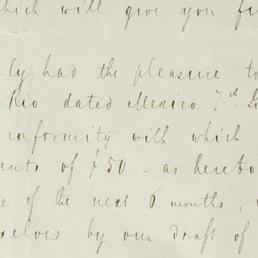 which will give you fu
ly had the pleasure to
Rio dated Mexico 7th
onformity with which
unts of $50 - as hereto
e of the next 6 months,
selves by our draft of